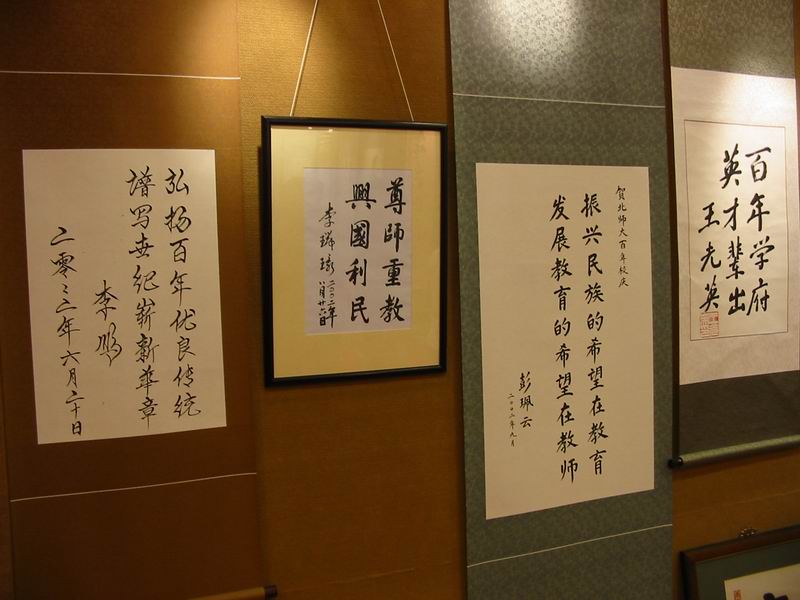 弘扬百年优良传统
谱写世纪崭新华章
李鹏
二零零二年六月二十日
尊師重教
興國利民
李瑞环
二〇〇二年
八月廿六日
贺北师大百年校庆
振兴民族的希望在教育
发展教育的希望在教师
彭珮云
二〇〇二年九月
百年学府
英才辈出
王光英